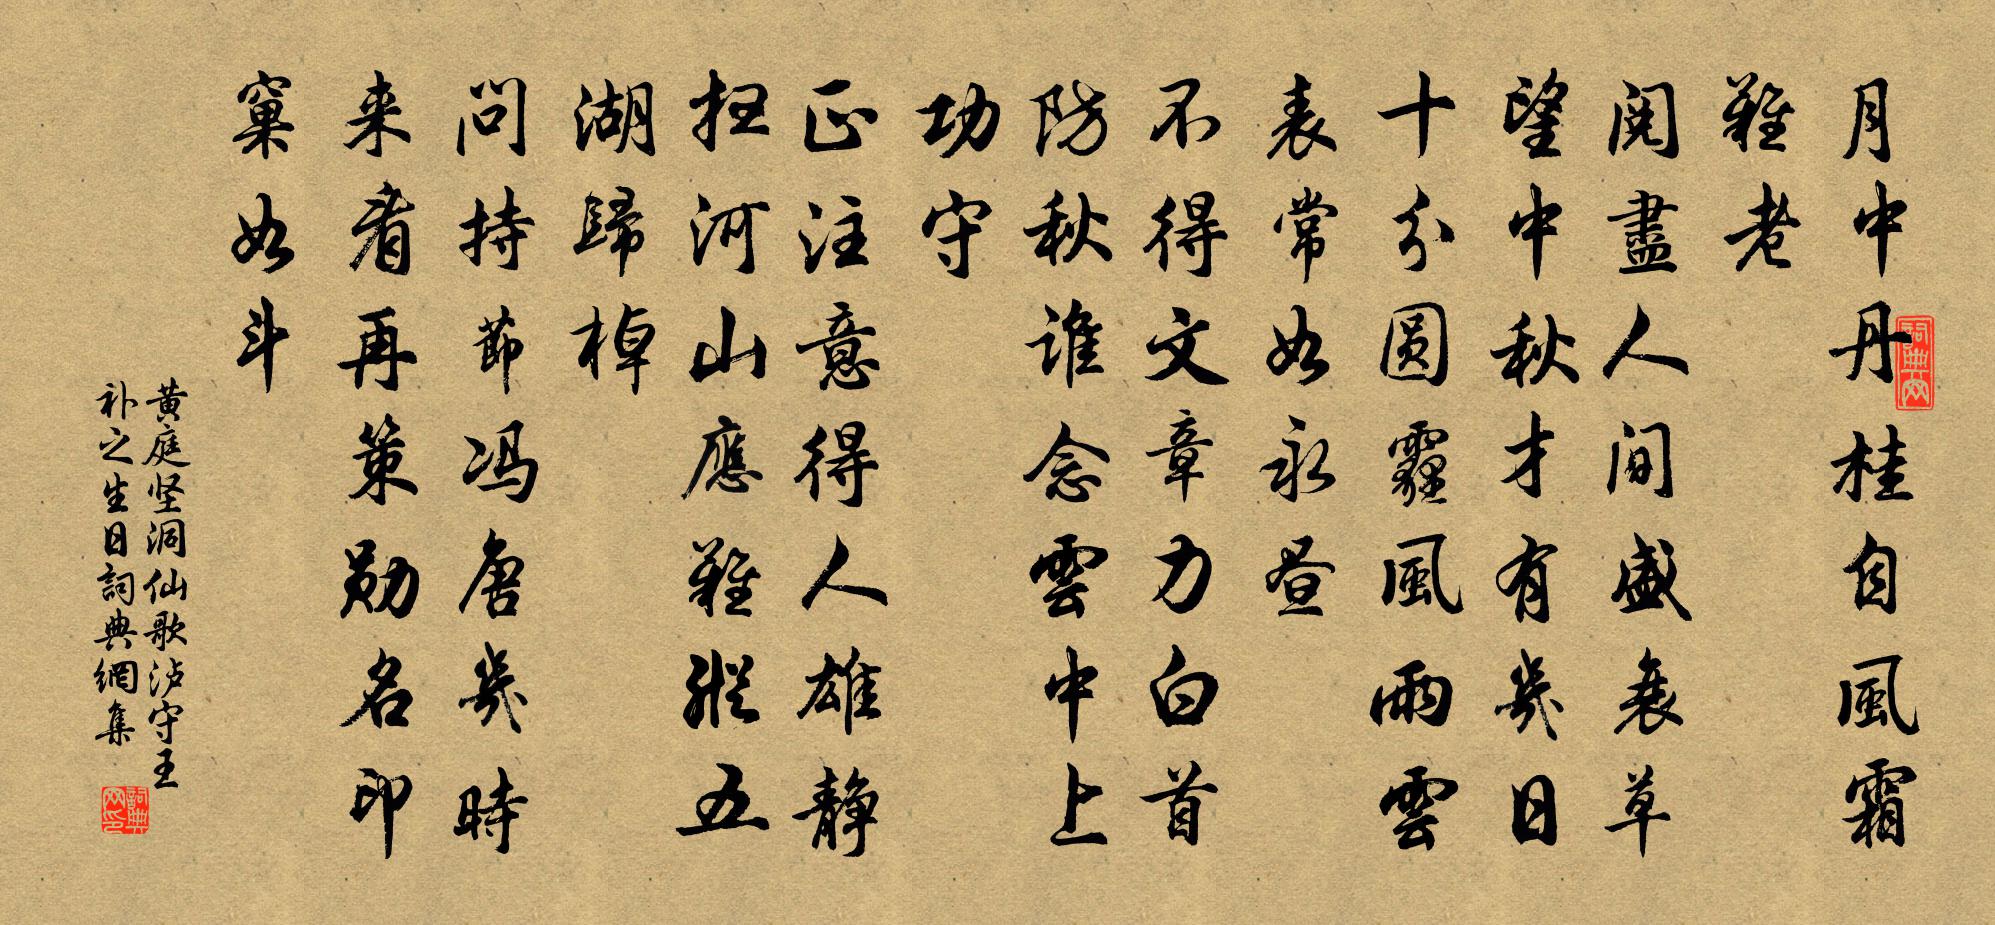 月中丹桂自風霜
難老
閱盡人间盛衰草
望中秋才有幾日
十分圆霾風雨雲
表常如永昼
不得文章力白首
防秋谁念雲中上
功守
正注意得人雄静
扫河山應難縱五
湖歸棹
问持節冯唐幾時
来看再策勋名印
窠如斗
黄庭坚洞仙歌泸守王
补之生日詞典網集
詞典网
詞典网印